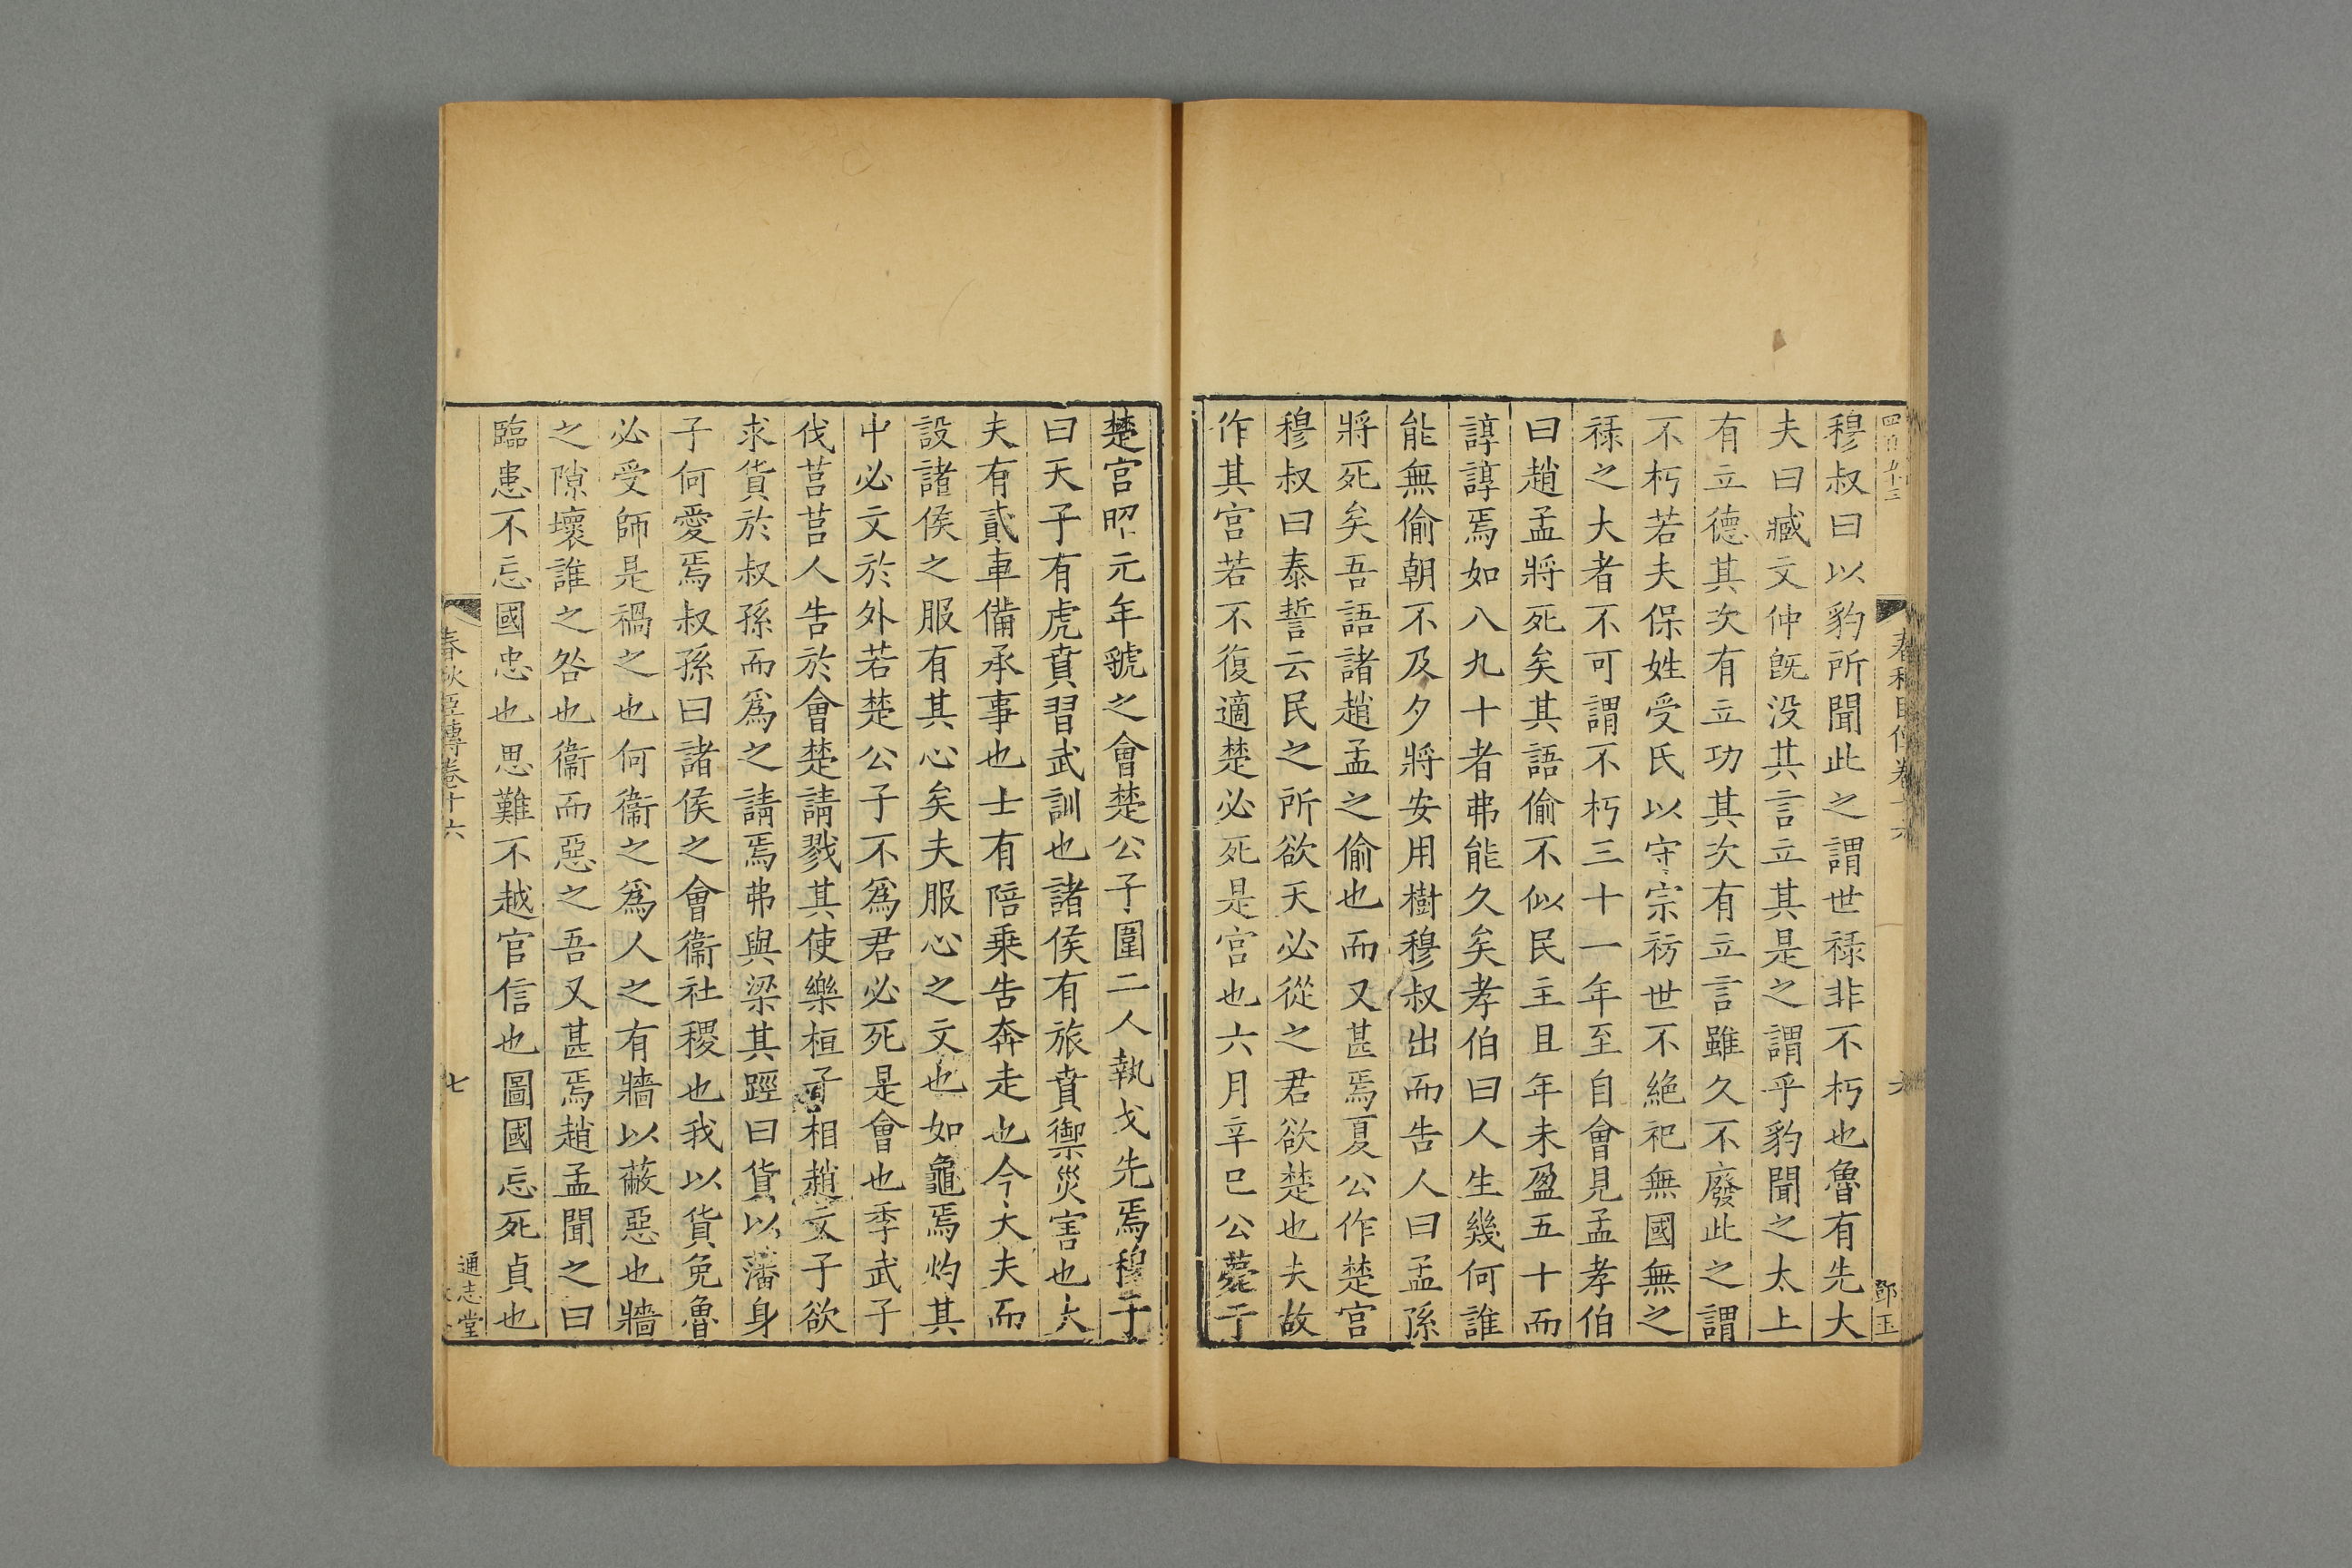 四百九十三
春秋臣傳卷十六
六
鄧玉
穆叔曰以豹所聞此之謂世祿非不朽也魯有先大
夫曰臧文仲旣没其言立其是之謂乎豹聞之太上
有立德其次有立功其次有立言雖久不廢此之謂
不朽若夫保姓受氏以守宗祊世不絶祀無國無之
祿之大者不可謂不朽三十一年至自會見孟孝伯
曰趙孟將死矣其語偷不似民主且年未盈五十而
諄諄焉如八九十者弗能久矣孝伯曰人生幾何誰
能無偷朝不及夕將安用樹穆叔出而告人曰孟孫
將死矣吾語諸趙孟之偷也而又甚焉夏公作楚宮
穆叔曰泰誓云民之所欲天必從之君欲楚也夫故
作其宮若不復適楚必死是宮也六月辛巳公薨于
楚宮昭元年虢之會楚公子圍二人執戈先焉穆子
曰天子有虎賁習武訓也諸侯有旅賁禦災害也大
夫有貳車備承事也士有陪乗告奔走也今大夫而
設諸侯之服有其心矣夫服心之文也如龜焉灼其
中必文於外若楚公子不爲君必死是會也季武子
伐莒莒人告於會楚請戮其使樂桓子相趙文子欲
求貨於叔孫而爲之請焉弗與梁其踁曰貨以藩身
子何愛焉叔孫曰諸侯之會衞社稷也我以貨免魯
必受師是禍之也何衞之爲人之有牆以蔽惡也牆
之隙壞誰之咎也衞而惡之吾又甚焉趙孟聞之曰
臨患不忘國忠也思難不越官信也圖國忘死貞也
春秋臣傳卷十六
七
通志堂